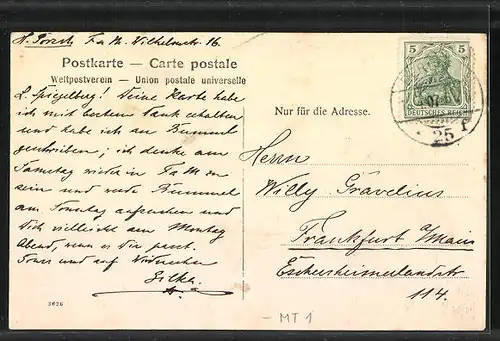 Wilhelmstr. 16
Postkarte — Carte postale
Weltpostverein — Union postale universelle
L. Spiegelberg! Deine Karte habe
ich mit bestem Dank erhalten
und habe ich an Bummel
geschrieben; ich denke am
Samstag wieder in
sein und werde Bummel
am Sonntag aufsuchen und
Dich vielleicht am Montag
Abend, wenn es Dir passt.
und auf Wiedersehen
3626
Nur für die Adresse.
5 5
DEUTSCHES REICH
25 f
Herrn
Willy Grävelius
Frankfurt a/Main
Eschersheimerlandstr
114.
- MT 1